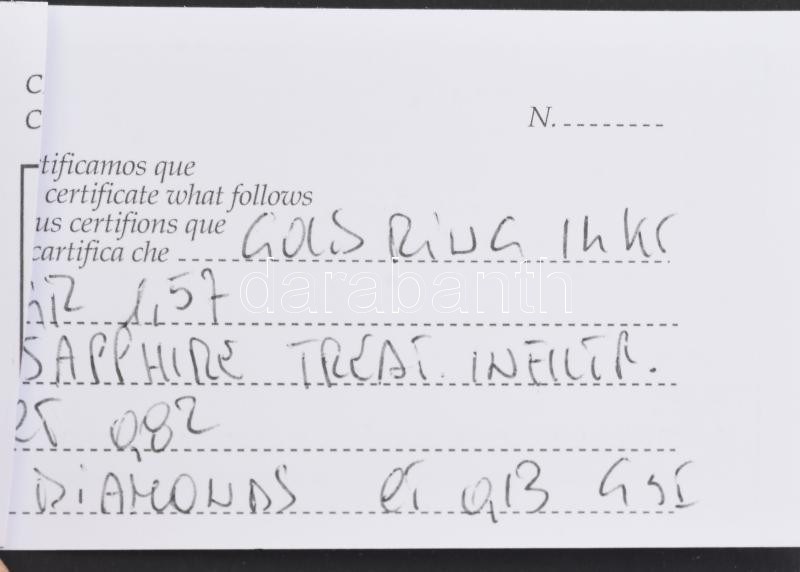 C
C
N.
tificamos que
certificate what follows
us certifions que
cartifica che GOLD RING 14 KT
1,57
SAPPHIRE TREAT. INFILTR.
CT 0,82
DIAMONDS CT 0,13 G SI
darabanth